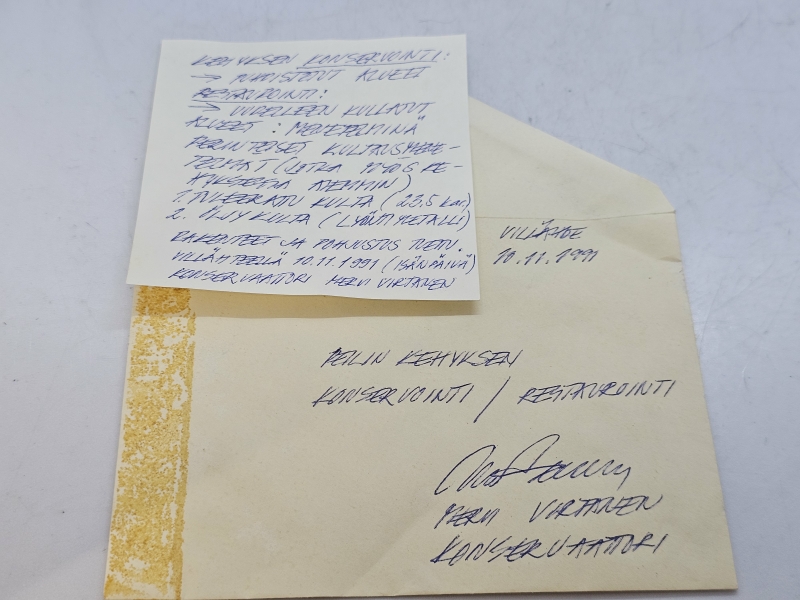 KEHYKSEN KONSERVOINTI:
→ PUHDISTETUT ALUEET
RESTAUROINTI:
→ UUDELLEEN KULLATUT
ALUEET : MENETELMINÄ
PERINTEISET KULTAUSMENE-
TELMÄT (JOTKA MYÖS KE-
HYKSESSÄ AIEMMIN)
1. KULTA (23,5 kar.)
2. ÖLJYKULTA (LYÖNTIMETALLI)
RAKENTEET JA POHJUSTUS
VILLÄHTEELLÄ 10.11.1991 (ISÄNPÄIVÄ)
KONSERVAATTORI MERVI VIRTANEN
VILLÄHDE
10.11.1991
PEILIN KEHYKSEN
KONSERVOINTI / RESTAUROINTI
MERVI VIRTANEN
KONSERVAATTORI